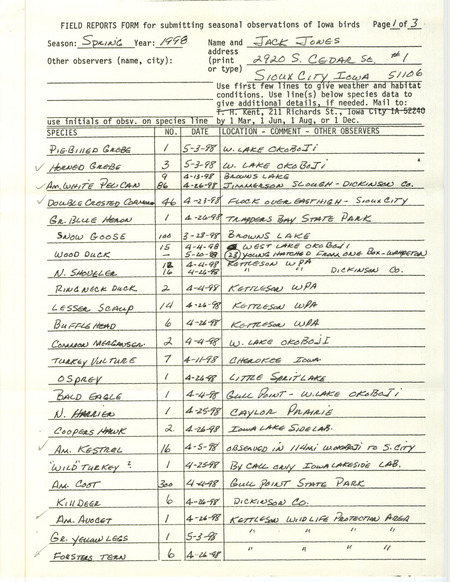 FIELD REPORTS FORM for submitting seasonal observations of Iowa birds Page 1 of 3
Season: SPRING Year: 1998 Name and JACK JONES
address
Other observers (name, city): (print 2920 S. CEDAR SQ. #1
or type) SIOUX CITY IOWA 51106
Use first few lines to give weather and habitat
conditions. Use line(s) below species data to
give additional details, if needed. Mail to:
T. H. Kent, 211 Richards St., Iowa City IA 52240
use initials of obsv. on species line by 1 Mar, 1 Jun, 1 Aug, or 1 Dec.
SPECIES NO. DATE LOCATION - COMMENT - OTHER OBSERVERS
PIE BILLED GREBE 1 5-3-98 W. LAKE OKOBOJI
✓ HORNED GREBE 3 5-3-98 W. LAKE OKOBOJI
9 4-13-98 BROWNS LAKE
✓ AM. WHITE PELICAN 86 4-26-98 JIMMERSON SLOUGH - DICKINSON CO.
✓ DOUBLE CRESTED CORMORANT 46 4-23-98 FLOCK OVER EAST HIGH - SIOUX CITY
GR. BLUE HERON 1 4-26-98 TRAPPERS BAY STATE PARK
SNOW GOOSE 100 3-28-98 BROWNS LAKE
15 4-4-98 WEST LAKE OKOBOJI
WOOD DUCK — 5-10-98 (23) YOUNG HATCHED FROM ONE BOX -
12 4-4-98 KETTLESON WPA
N. SHOVELER 16 4-26-98 " " DICKINSON CO.
RING NECK DUCK 2 4-4-98 KETTLESON WPA
LESSER SCAUP 14 4-26-98 KETTLESON WPA
BUFFLEHEAD 6 4-26-98 KETTLESON WPA
COMMON MERGANSER 2 4-4-98 W. LAKE OKOBOJI
TURKEY VULTURE 7 4-11-98 CHEROKEE IOWA
OSPREY 1 4-26-98 LITTLE SPRIT LAKE
BALD EAGLE 1 4-4-98 GULL POINT - W. LAKE OKOBOJI
N. HARRIER 1 4-25-98 CAYLOR PRAIRIE
COOPERS HAWK 2 4-26-98 IOWA LAKE SIDE LAB.
✓ AM. KESTREL 16 4-5-98 OBSERVED IN 114 mi W OKOBOJI TO S. CITY
"WILD" TURKEY ? 1 4-25-98 BY CALL ONLY IOWA LAKESIDE LAB.
AM. COOT 300 4-4-98 GULL POINT STATE PARK
✓ KILLDEER 6 4-26-98 DICKINSON CO.
AM. AVOCET 1 4-26-98 KETTLESON WILDLIFE PROTECTION AREA
GR. YELLOW LEGS 1 5-3-98 " " " "
✓ FORSTERS TERN 6 4-26-98 " " " "